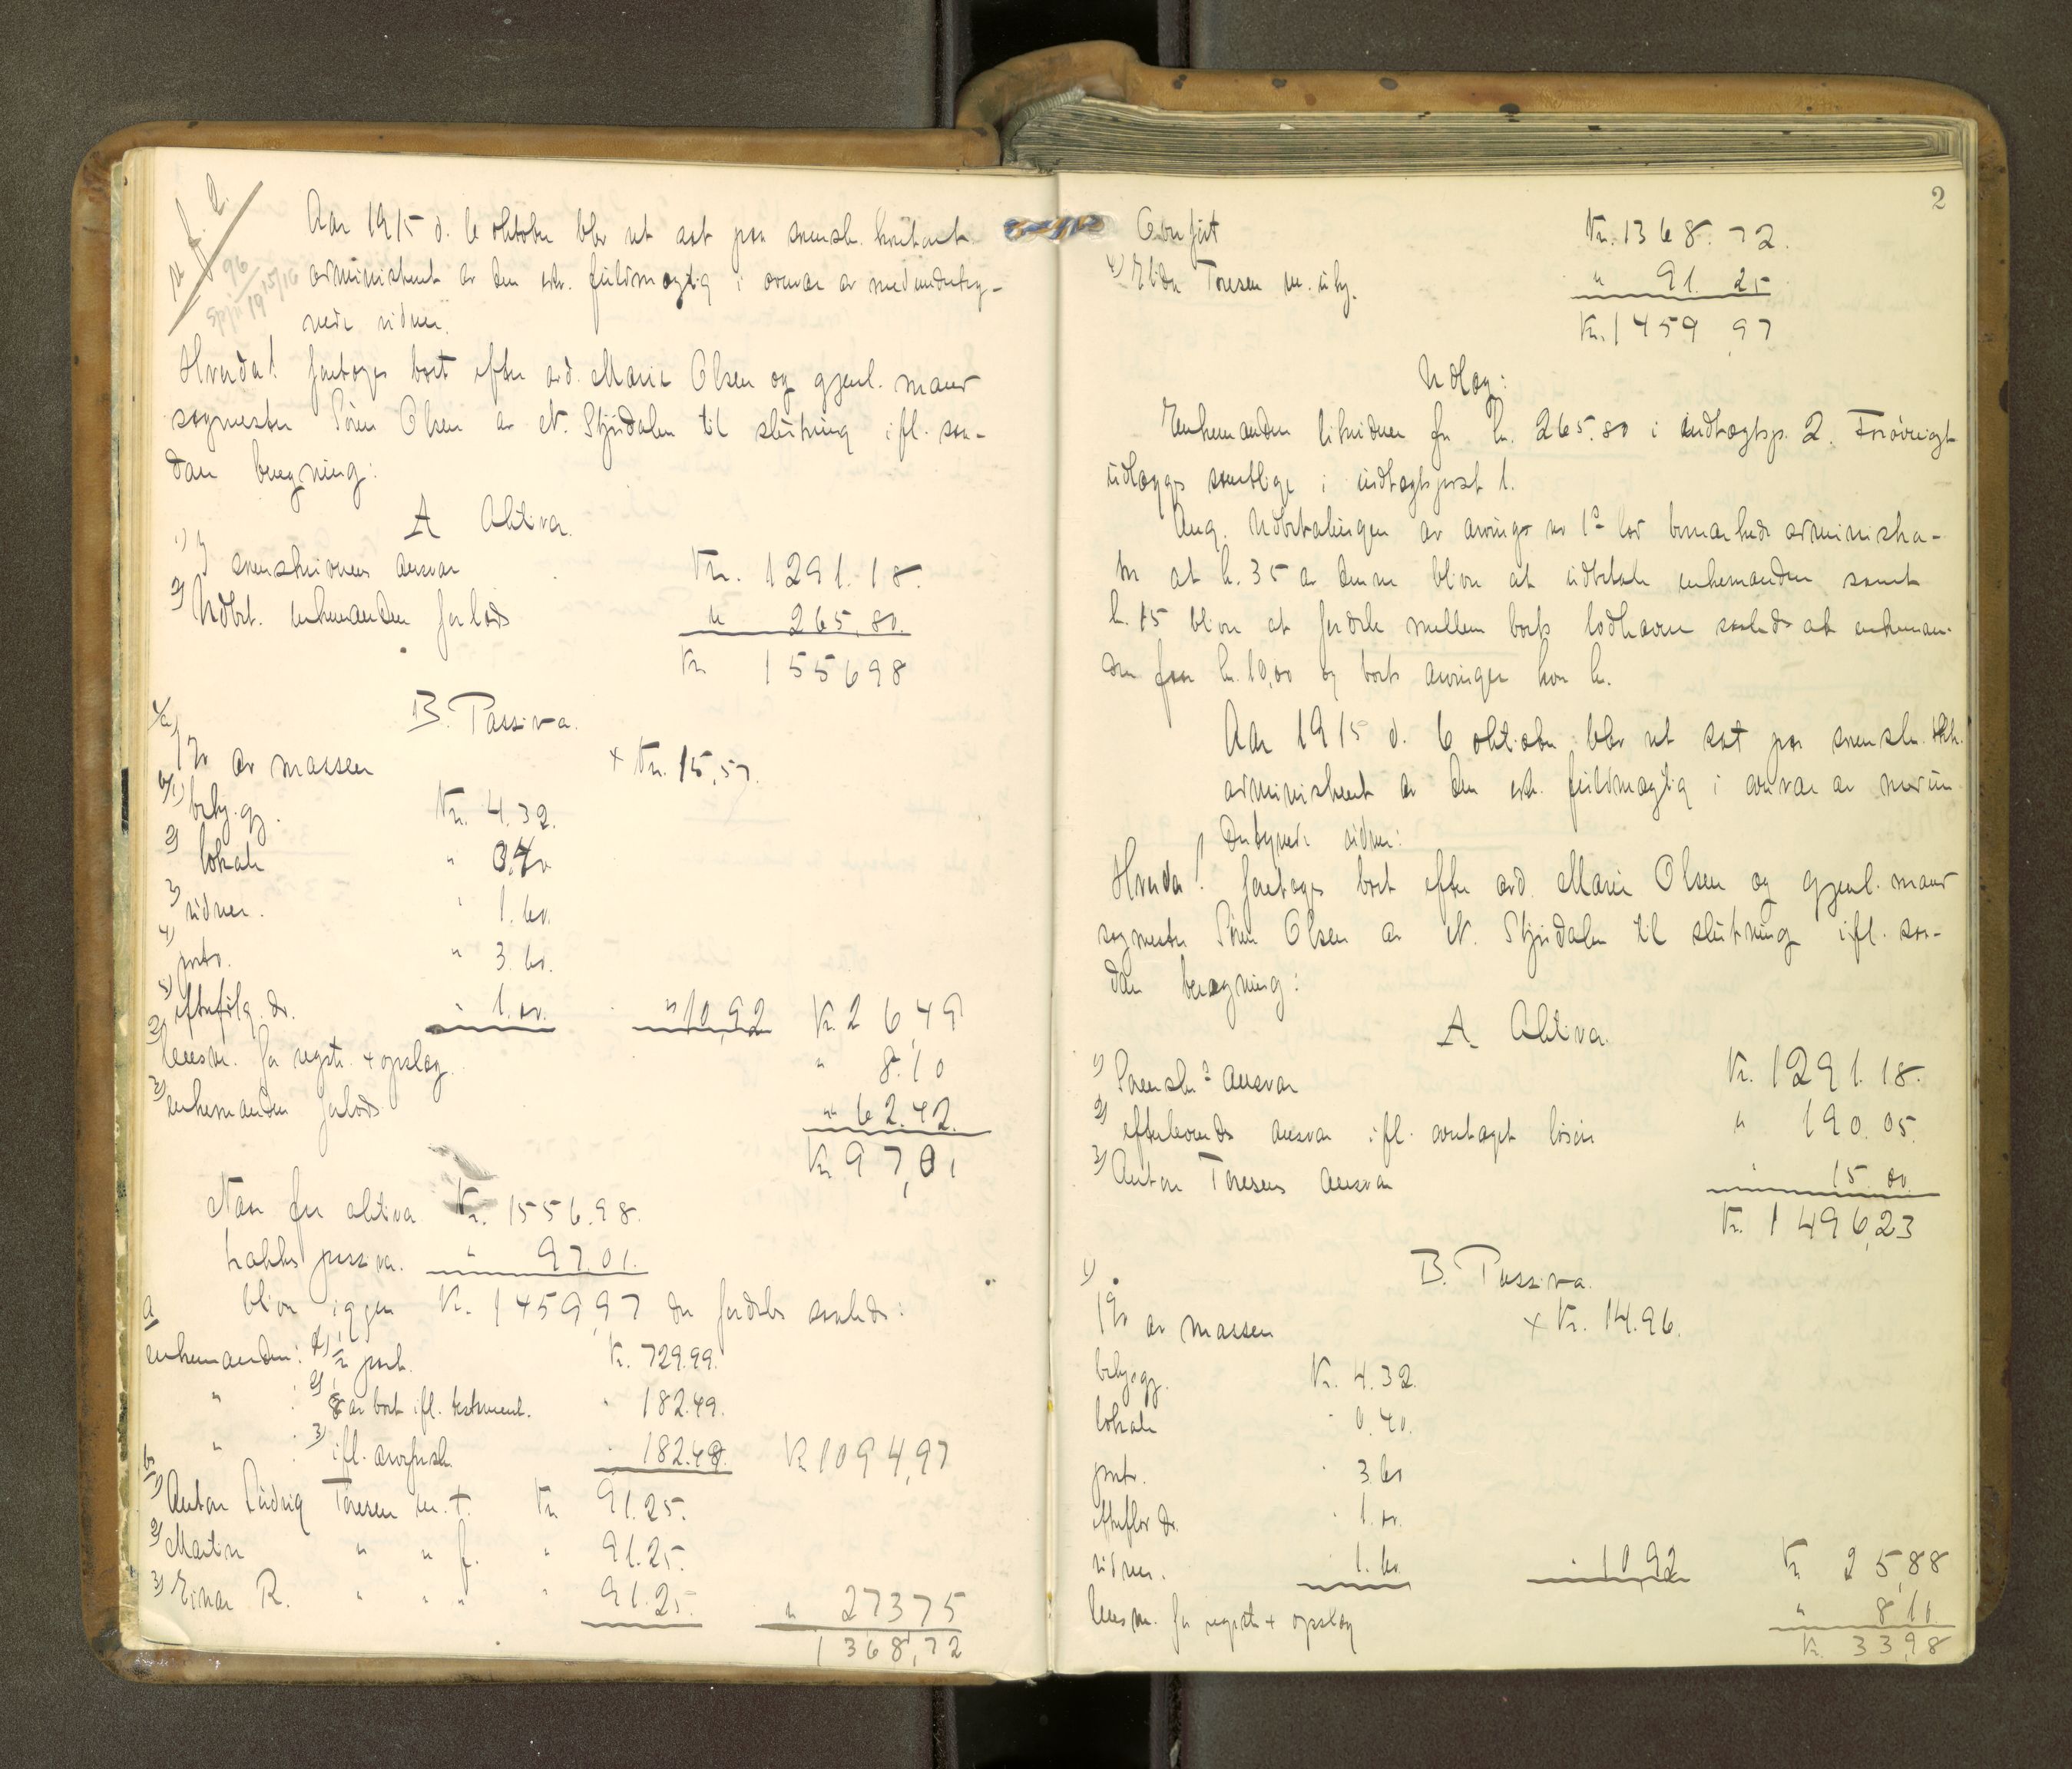 Aar 1915 d. 6 oktober blev ret sat paa sorensk. kontoret
administrert av den edv. fuldmægtig i overvær av medunderteg-
nede vidner.
Hvorda! foretoges boet efter avd. Marie Olsen og gjenl. mand
sagmester Sören Olsen av N. Stjördalen til slutning ifl. saa-
dan beregning:
A Aktiva.
1) I sorenskriverens ansvar Kr. 1291.18.
2) Udbet. enkemanden forlods " 265,80.
Kr 155698
B. Passiva.
1/a) 1% av massen + Kr. 15,57.
b/1) beky. gj. Kr. 4.32.
2) lokale " 0.40
3) vidner. " 1.60.
4) porto. " 3.60.
5) efterfölg. do. " 1.00. " 10,92 Kr. 26,49
2) lensm. for registr. + opslag. " 8.10
3) enkemanden forlods " 62.42.
Kr. 97,01
Naar fra aktiva Kr. 1556.98.
trækkes passiva. " 97.01.
bliver igjen Kr. 1459,97 der fordeles saaledes:
a
enkemanden: 1) ½ part. Kr. 729.99.
" : 2) ⅛ av boet ifl. testament. " 182.49.
" : 3) ifl. arvefusk. " 182.49. Kr 1094,97
b
1) Anton Ludvig Toresen m. t. Kr 91.25.
2) Martin " " f. " 91.25.
3) Einar R. " " " " 91.25. " 27375
1368,72
2
Overfört Kr. 1368.72.
4) Toresen m. " 91.25
Kr. 1459,97
Udlæg:
Enkemanden likviderer for kr. 265.80 i indtægtsp. 2. Forövrigt
udlægges samtlige i indtægtspost 1.
Ang. udbetalingen av arvinger nr 1s lod bemærkede administra-
tor at kr. 35 av denne bliver at udbetale enkemanden samt
kr. 15 bliver at fordele mellem boets lodhavere saaledes at enkeman-
den faar kr. 10,00 og boets arvinger hver kr.
Aar 1915 d. 6 oktober blev ret sat paa sorensk.
administrert av den edv. fuldmægtig i overvær av medun-
dertegnede vidner:
Hvorda! foretoges boet efter avd. Marie Olsen og gjenl. mand
sagmester Sören Olsen av N. Stjördalen til slutning ifl. saa-
dan beregning:
A Aktiva.
1) Sorenskrs ansvar Kr. 1291.18.
2) efterlevendes ansvar ifl. overtaget lösöre " 190.05.
3) Anton Toresens ansvar " 15.00.
Kr. 1496,23
B. Passiva.
1) 1% av massen + Kr. 14.96.
beky. gj. Kr. 4.32.
lokale " 0.40.
porto. " 3.60
efterfölg. do. " 1.00.
vidner. " 1.60. " 10,92 Kr 25,88
lensm. for registr. + opslag " 8.10.
Kr. 33,98